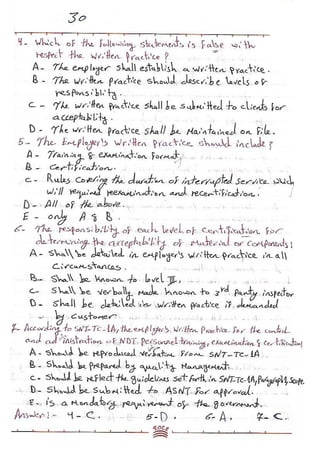 30
4- Which of the following statements is false with
respect the written practice?
A - The employer shall establish a written practice.
B - The written practice should describe levels of
responsiblity.
C - The written practice shall be submitted to clients for
acceptability.
D - The written practice shall be Maintained on File.
5- The Employer's written practice should include?
A - Training & examination format,
B - Certification.
C - Rules covering the duration of interrupted service which
will required reexamination and recertification.
D - All of the above.
E - only A & B.
6- The responsibility of each level of certification for
determining the acceptability of material or components:
A - Shall be detailed in employer's written practice in all
circumstances.
B - Shall be Known to level III.
C - Shall be verbally made known to 3rd party inspector
D - Shall be detailed in written practice if demanded
by customer
7- According to SNT-TC-1A, the employer's written Practice for the control
and administration of NDT Personnel training, examination & certification
A - Should be reproduced verbatim from SNT-TC-1A
B - Should be Prepared by quality Management.
C - Should be reflect the guidelines set forth in SNT-TC-1A, Paragraph 1, Scope
D - Should be submitted to ASNT for approval.
E - is a Mandatory requirement of the government.
Answer:- 4-C. 5-D. 6-A. 7-C.